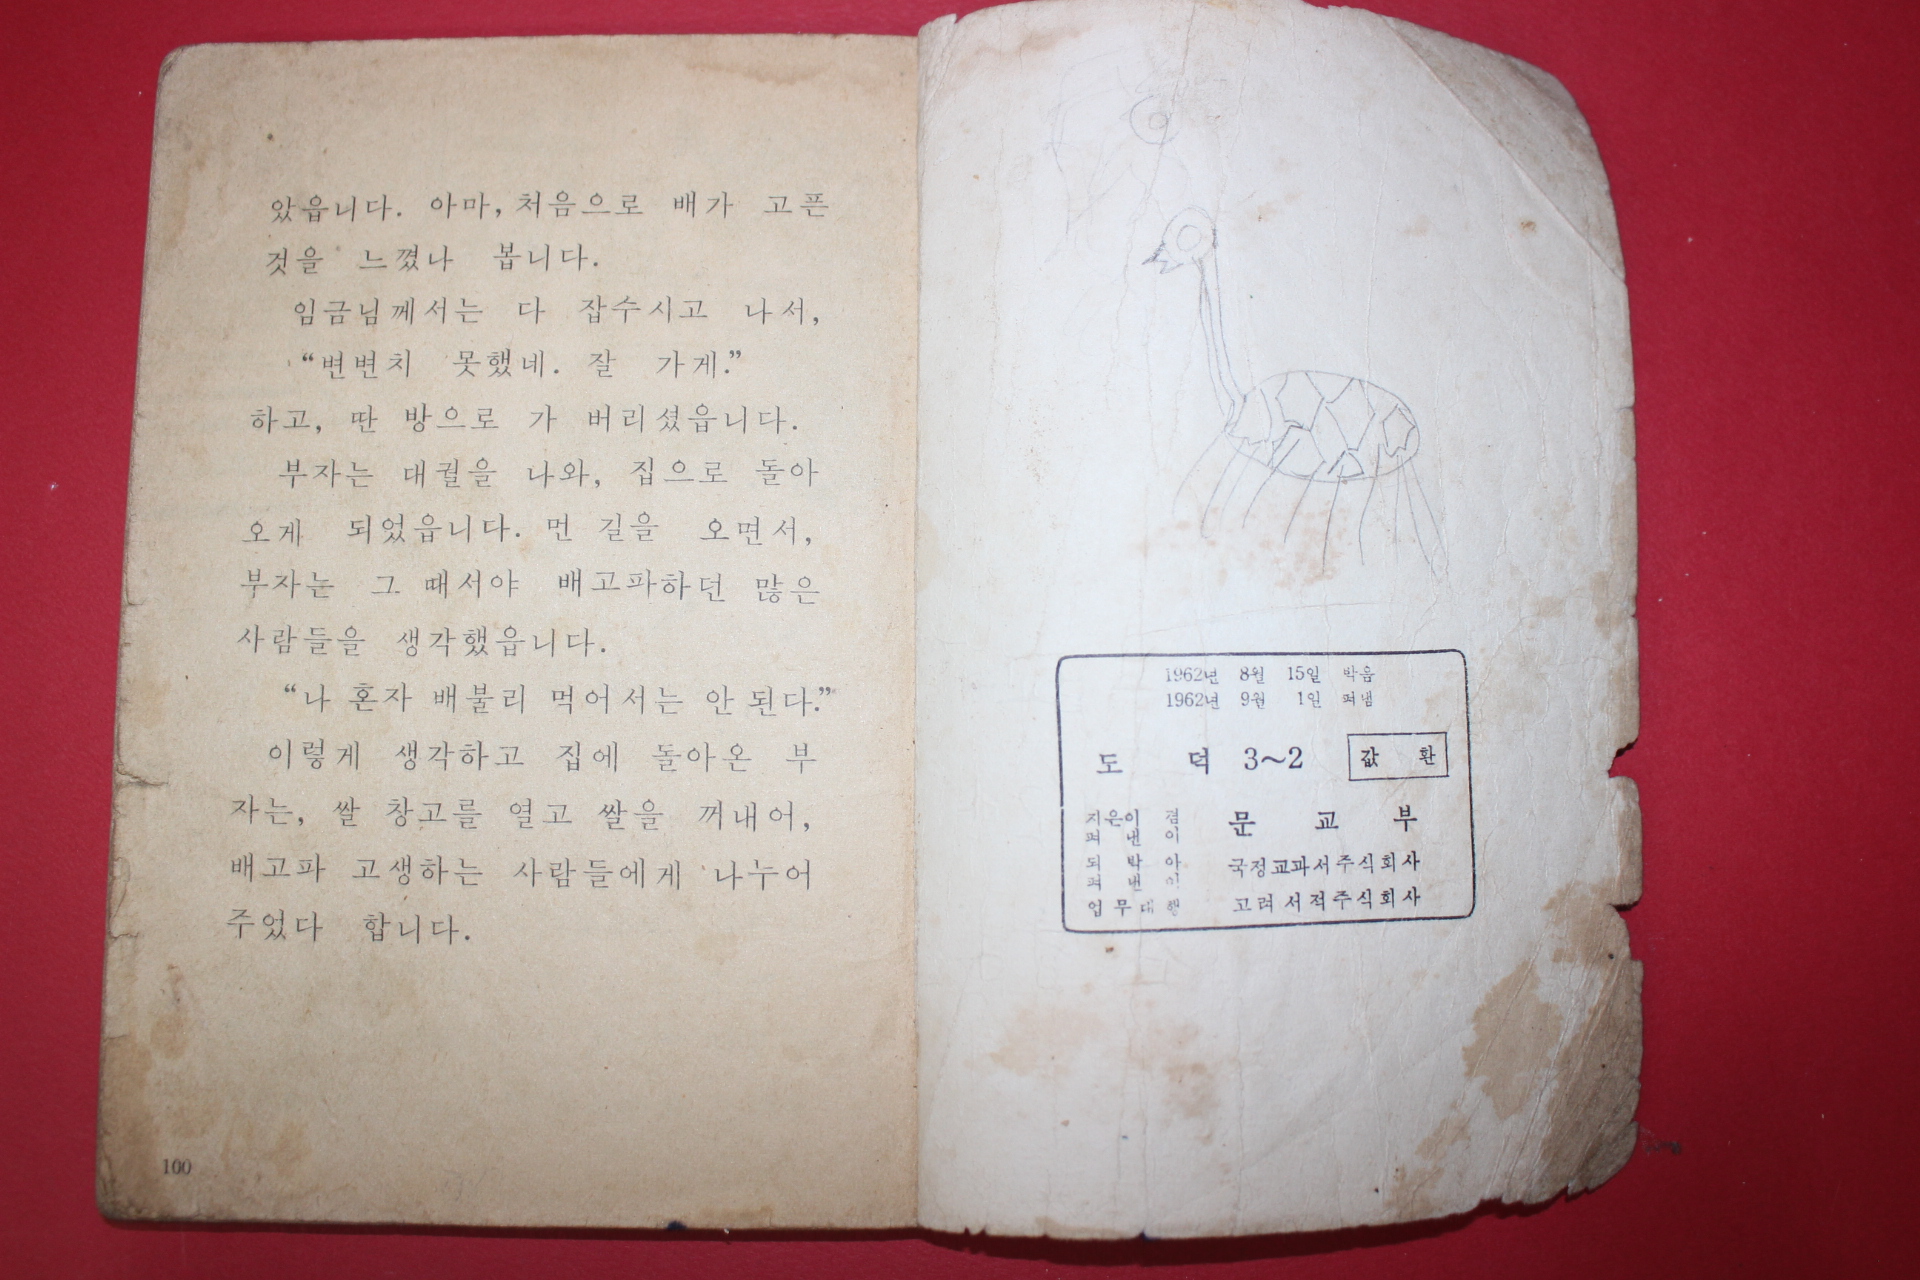 았읍니다. 아마, 처음으로 배가 고픈
것을 느꼈나 봅니다.
임금님께서는 다 잡수시고 나서,
“변변치 못했네. 잘 가게.”
하고, 딴 방으로 가 버리셨읍니다.
부자는 대궐을 나와, 집으로 돌아
오게 되었읍니다. 먼 길을 오면서,
부자는 그 때서야 배고파하던 많은
사람들을 생각했읍니다.
“나 혼자 배불리 먹어서는 안 된다.”
이렇게 생각하고 집에 돌아온 부
자는, 쌀 창고를 열고 쌀을 꺼내어,
배고파 고생하는 사람들에게 나누어
주었다 합니다.
100
1962년 8월 15일 박음
1962년 9월 1일 펴냄
도 덕 3~2 값 환
지은이 겸
펴 낸 이 문 교 부
되 박 아
펴 낸 이 국정교과서주식회사
업무대행 고려서적주식회사